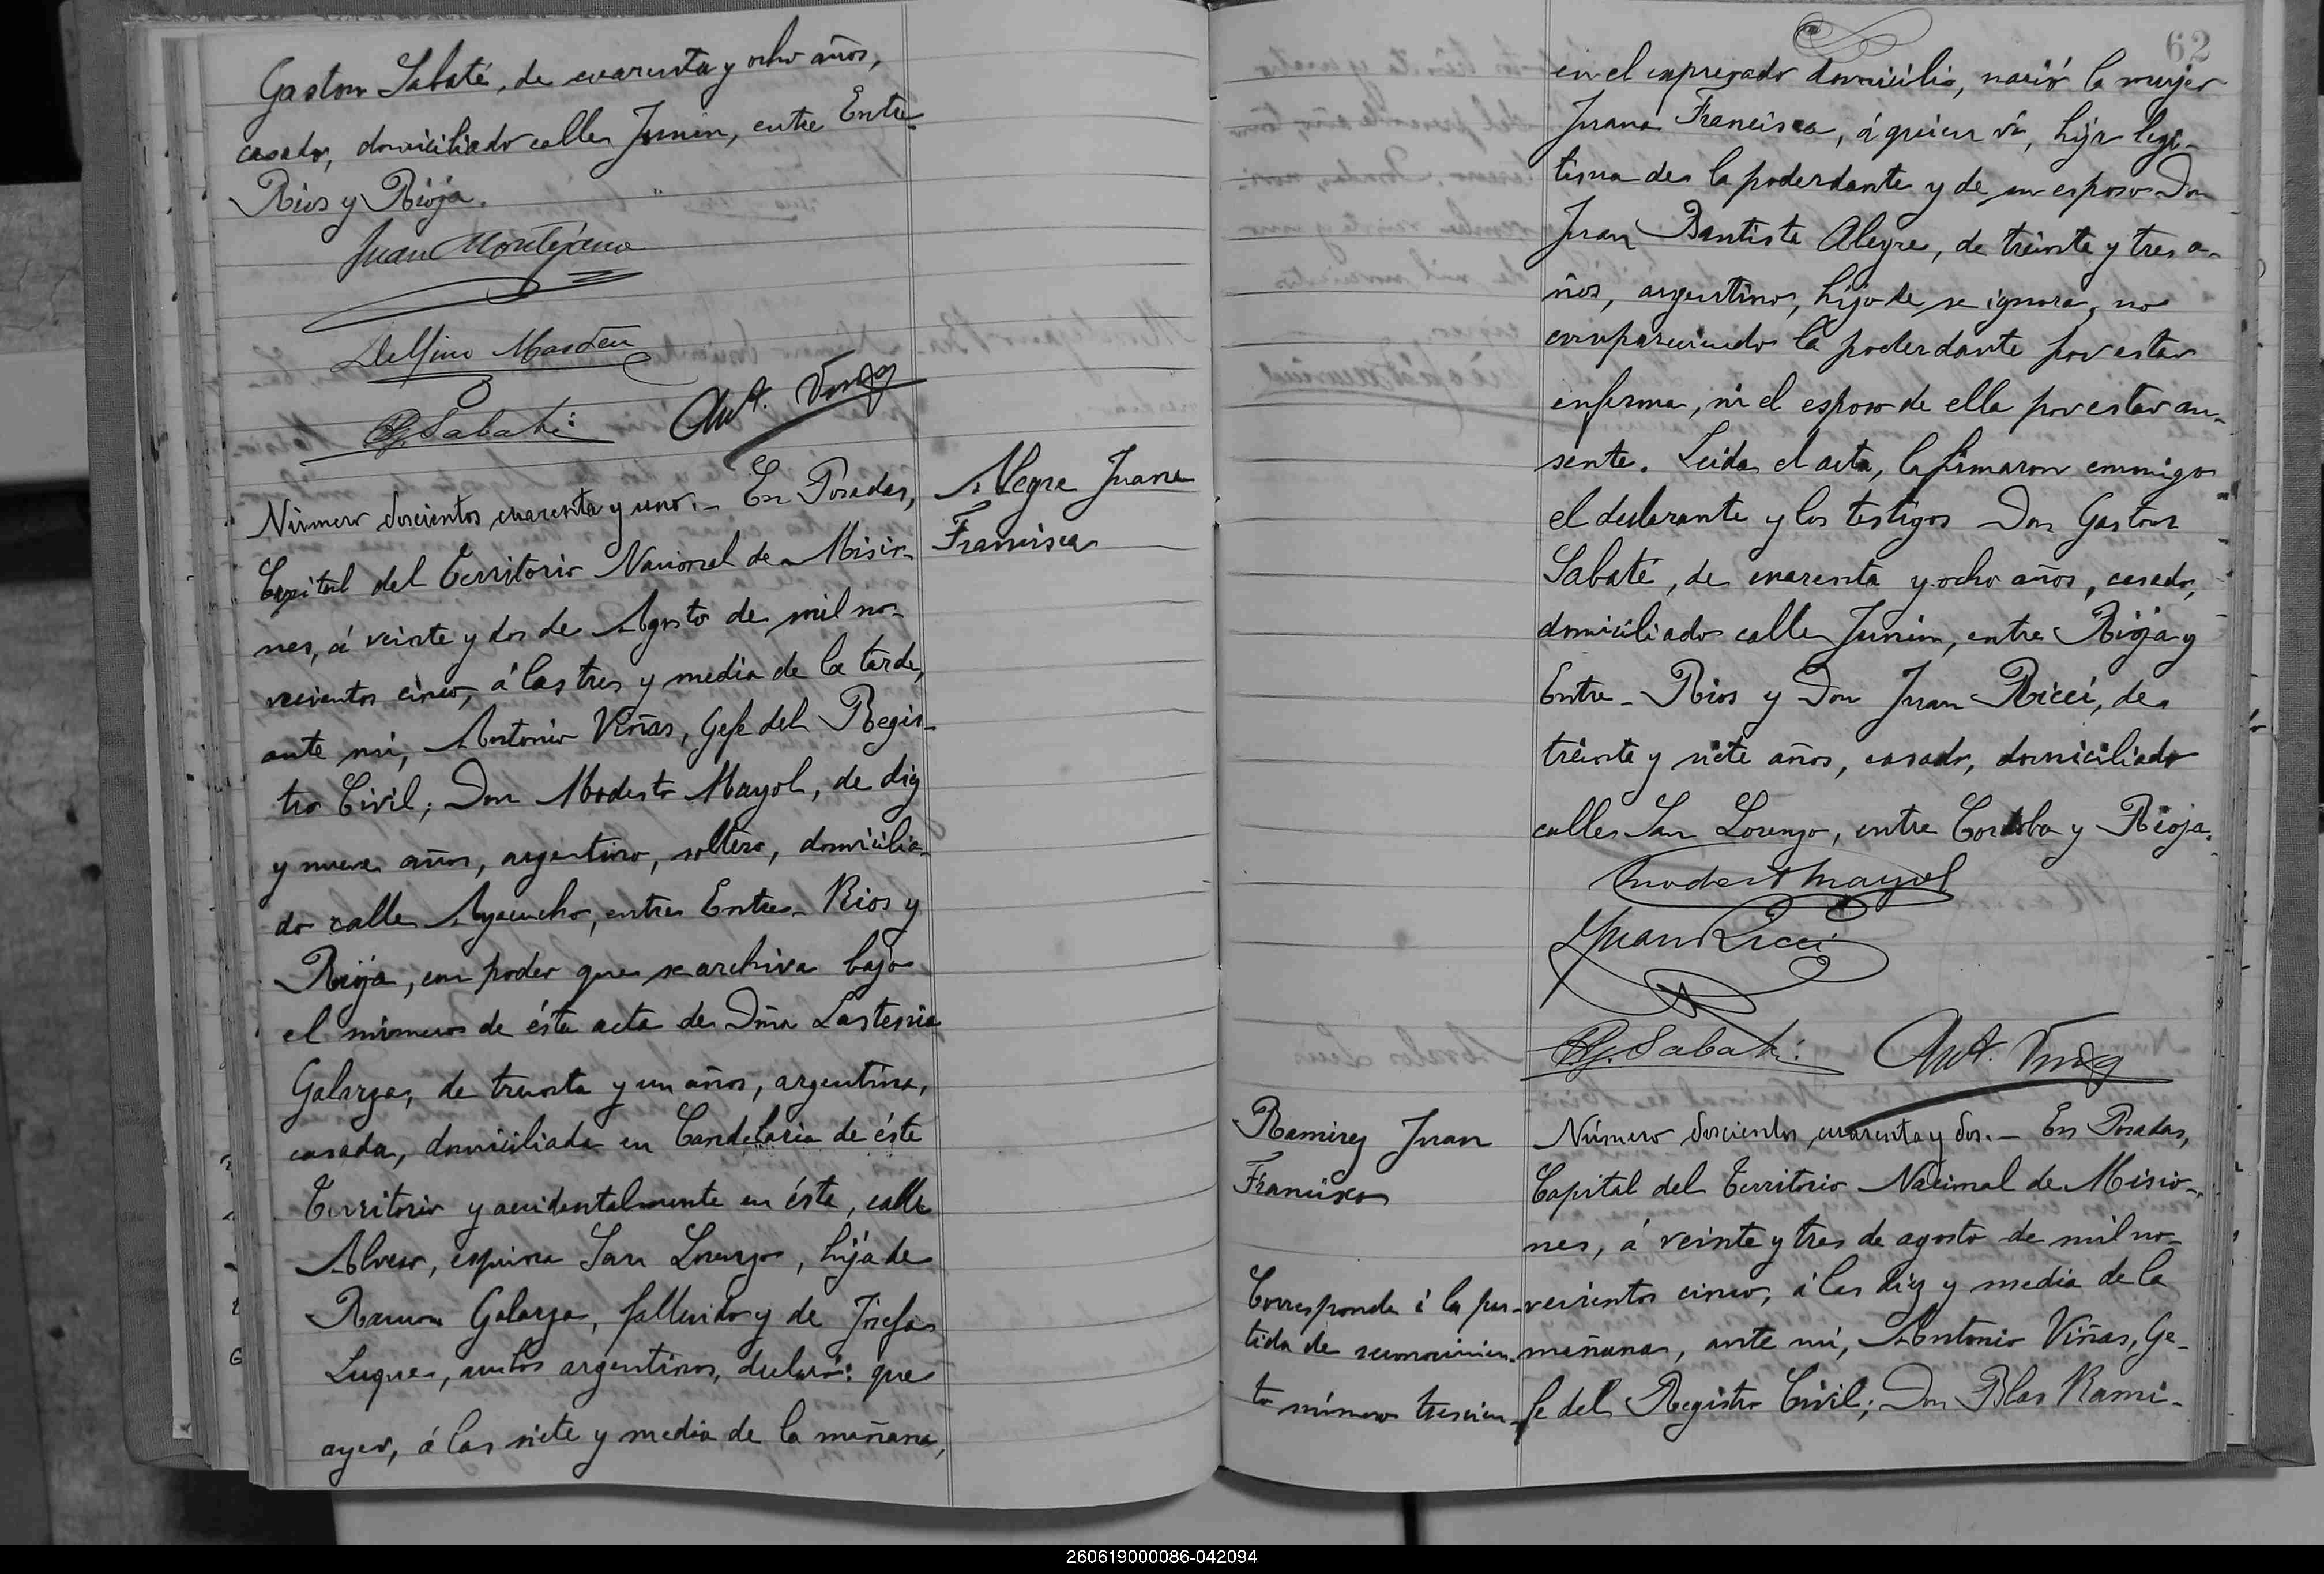 Gaston Sabaté, de cuarenta y ocho años,
casado, domiciliado calle Junin, entre Entre
Rios y Rioja.
Juan Montejano
Delfino
G. Sabaté
Ant. Viñas
Número doscientos cuarenta y uno.- En Posadas,
Capital del Territorio Nacional de Misio-
nes, á veinte y dos de Agosto de mil no-
vecientos cinco, á las tres y media de la tarde,
ante mi, Antonio Viñas, Gefe del Regis-
tro Civil; Don Modesto Mayol, de diez
y nueve años, argentino, soltero, domicilia-
do calle Ayacucho, entre Entre-Rios y
Rioja, con poder que se archiva bajo
el número de ésta acta de Dña Lastenia
Galarza, de treinta y un años, argentina,
casada, domiciliada en Candelaria de éste
Territorio y accidentalmente en ésta, calle
Alvear, esquina San Lorenzo, hija de
Ramon Galarza, fallecido y de Josefa
Luque, ambos argentinos, declaró: que
ayer, á las siete y media de la mañana,
Alegre Juana
Francisca
62
en el expresado domicilio, nació la mujer
Juana Francisca, á quien ví, hija legí-
tima de la poderdante y de su esposo Don
Juan Bautista Alegre, de treinta y tres a-
ños, argentino, hijo de se ignora, no
compareciendo la poderdante por estar
enferma, ni el esposo de ella por estar au-
sente. Leida el acta, la firmaron conmigo
el declarante y los testigos Don Gaston
Sabaté, de cuarenta y ocho años, casado,
domiciliado calle Junin, entre Rioja y
Entre-Rios y Don Juan Ricci, de
treinta y siete años, casado, domiciliado
calle San Lorenzo, entre Cordoba y Rioja.
Modesto Mayol
Juan Ricci
G. Sabaté
Ant. Viñas
Ramirez Juan
Francisco
Corresponde á la par-
tida de reconocimien-
to número trescien-
Número doscientos cuarenta y dos.- En Posadas,
Capital del Territorio Nacional de Misio-
nes, á veinte y tres de agosto de mil no-
vecientos cinco, á las diez y media de la
mañana, ante mi, Antonio Viñas, Ge-
fe del Registro Civil; Don Blas Rami-
260619000086-042094